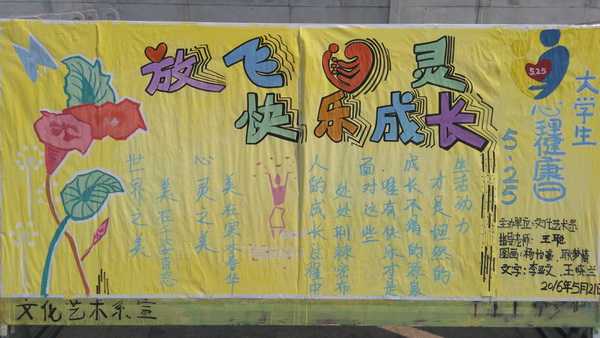 放飞 灵
快乐成长
世界之美
美在千古百态
心灵之美
美在实木春华
人的成长过程中
处处荆棘密布
面对这些
唯有快乐才是
成长不竭的源泉
才是坦然的
生活动力
5.25
大学生
心理健康日
5.25
主办单位:文化艺术系
指导老师: 王聪
图画: 杨怡
文字: 李亚文、王晓兰
2016年5月21日
文化艺术系宣